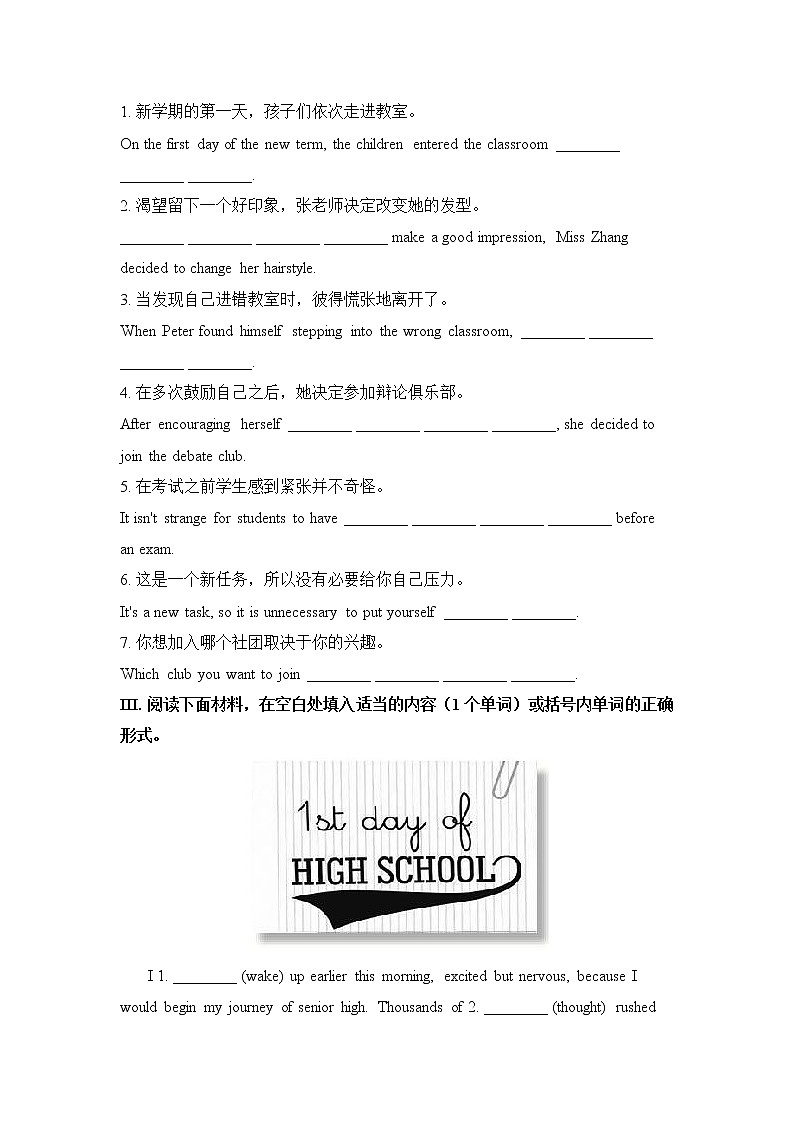 1. 新学期的第一天，孩子们依次走进教室。
On the first day of the new term, the children entered the classroom ________
________ ________.
2. 渴望留下一个好印象，张老师决定改变她的发型。
________ ________ ________ ________ make a good impression, Miss Zhang
decided to change her hairstyle.
3. 当发现自己进错教室时，彼得慌张地离开了。
When Peter found himself stepping into the wrong classroom, ________ ________
________ ________.
4. 在多次鼓励自己之后，她决定参加辩论俱乐部。
After encouraging herself ________ ________ ________ ________, she decided to
join the debate club.
5. 在考试之前学生感到紧张并不奇怪。
It isn't strange for students to have ________ ________ ________ ________ before
an exam.
6. 这是一个新任务，所以没有必要给你自己压力。
It's a new task, so it is unnecessary to put yourself ________ ________.
7. 你想加入哪个社团取决于你的兴趣。
Which club you want to join ________ ________ ________ ________.
III. 阅读下面材料，在空白处填入适当的内容（1 个单词）或括号内单词的正确
形式。
1st day of
HIGH SCHOOL
I 1. ________ (wake) up earlier this morning, excited but nervous, because I
would begin my journey of senior high. Thousands of 2. ________ (thought) rushed